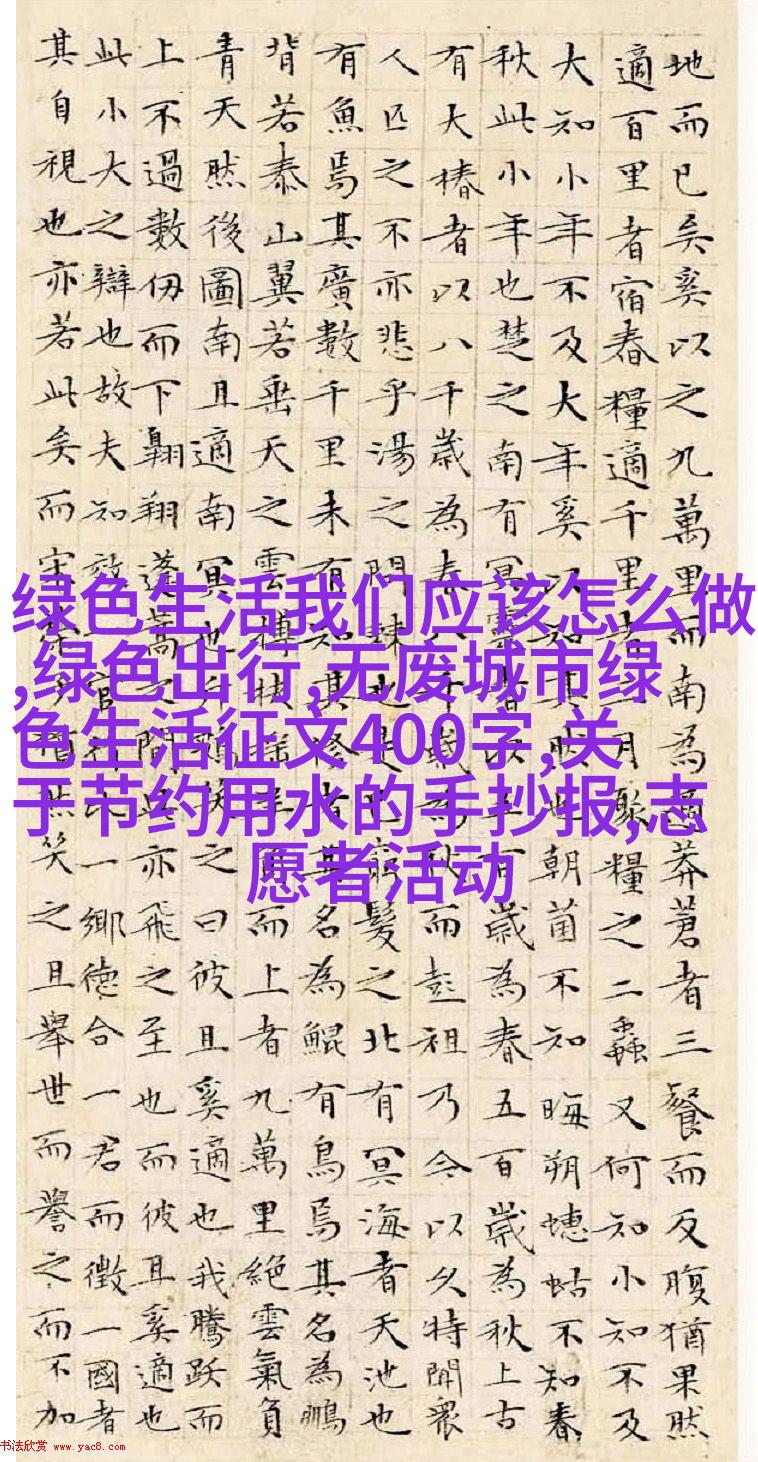 地而已矣奚以之九萬里而南為適莽蒼者三餐而反腹猶果然
適百里者宿舂糧適千里者三月聚糧之二蟲又何知小知不及
大知小年不及大年奚以知其然也朝菌不知晦朔蟪蛄不知春
秋此小年也楚之南有冥靈者以五百歲為春五百歲為秋上古
有大椿者以八千歲為春八千歲為秋而彭祖乃今以久特聞衆
人匹之不亦悲乎湯之問棘也是已窮髮之北有冥海者天池也
有魚焉其廣數千里未有知其修者其名為鯤有鳥焉其名為鵬
背若泰山翼若垂天之雲摶扶搖羊角而上者九萬里絕雲氣負
青天然後圖南且適南冥也斥鴳笑之曰彼且奚適也我騰躍而
上不過數仞而下翱翔蓬蒿之間此亦飛之至也而彼且奚適也
此小大之辯也故夫知效一官行比一鄉德合一君而徵一國者
其自視也亦若此矣而宋榮子猶然笑之且舉世而譽之而不加
绿色生活我们应该怎么做
,绿色出行,无废城市绿
色生活征文400字,关
于节约用水的手抄报,志
愿者活动
书法欣赏 www.yac8.com